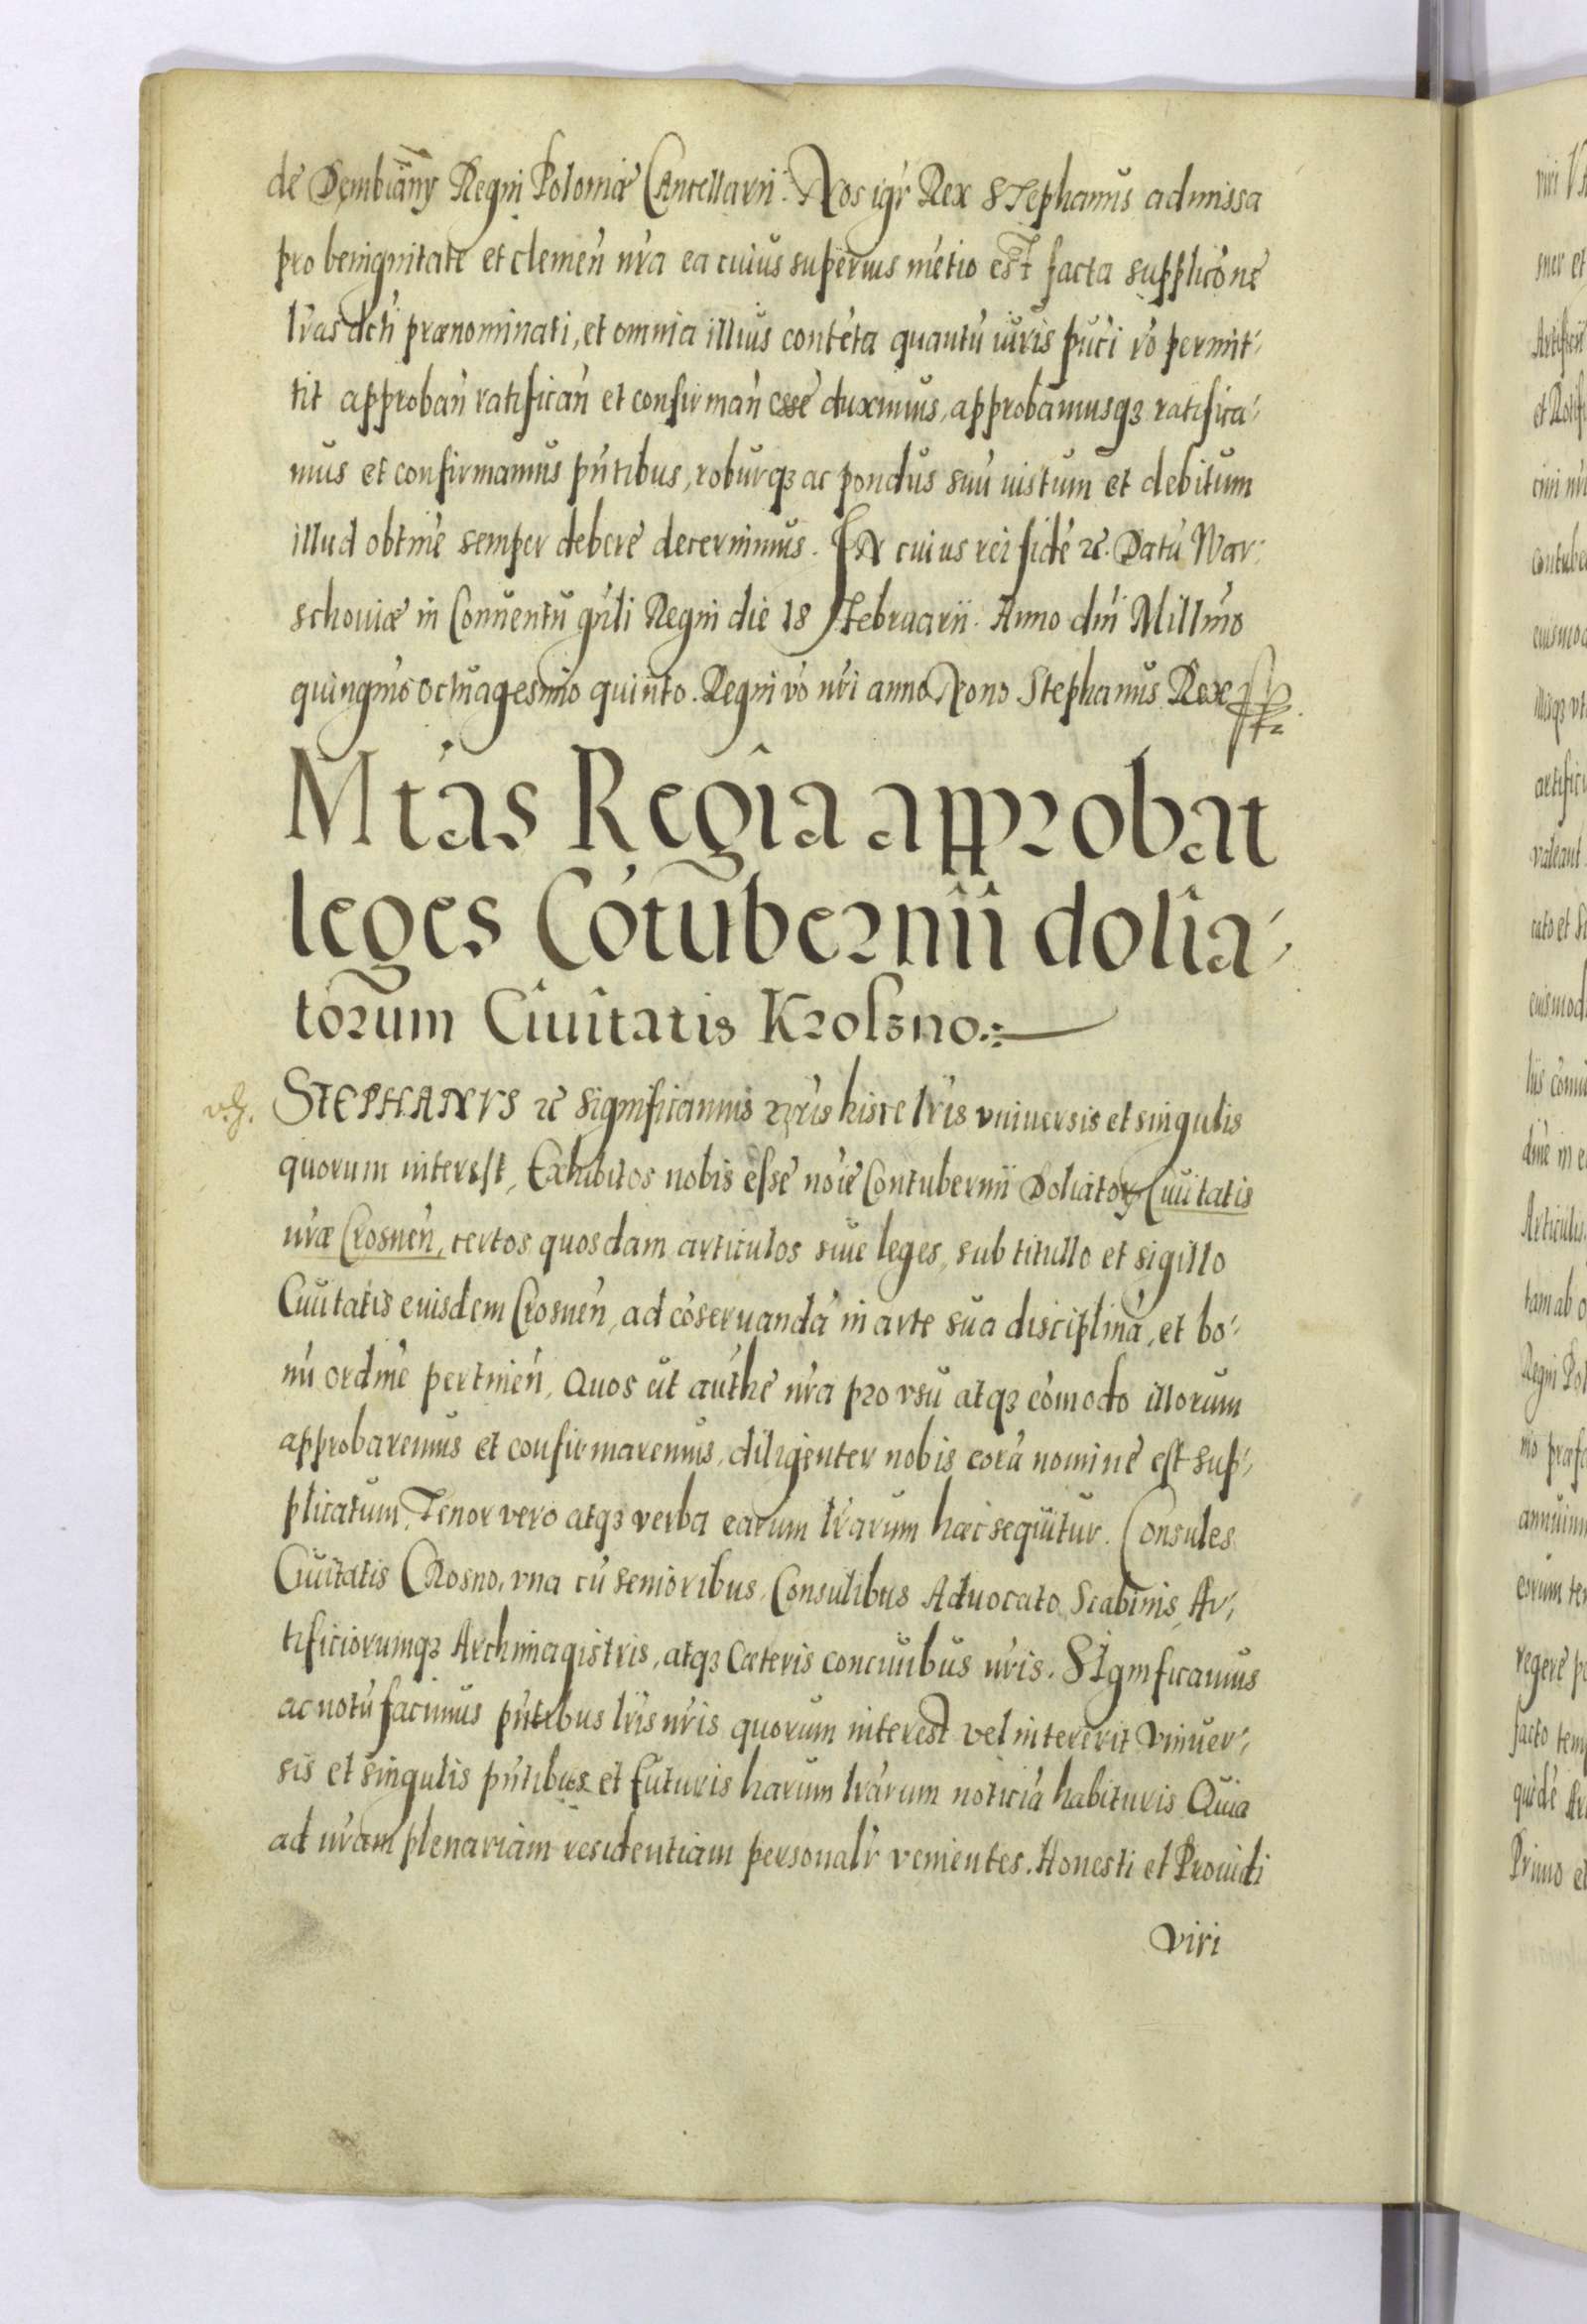 de Dembiany Regni Poloniæ Cancellarii. Nos igr̃ Rex STephanus admissa
pro benignitate et clemen̄ nr̃a ea cuius superius mẽtio est facta supplicõne
lr̃as dcti prænominati, et omnia illius contẽta quantũ iuris puci rõ permit-
tit approban̄ ratifican̄ et confirman̄ esse duximus, approbamusqꝫ ratifica-
mus et confirmamus pñtibus, roburqꝫ ac pondus suũ iustum et debitum
illud obtinẽ semper debere decernimus. IN cuius rei fidẽ ⁊c. Datũ War-
schouiæ in Conuentu gñli Regni die 18 Februarii. Anno dñi Millmõ
quingmõ octuagesimo quinto. Regni võ nr̃i anno Nono Stephanus Rex
Mtas Regia approbat
leges Cõtubernii dolia-
torum Ciuitatis Kroszno.
STEPHANVS ⁊c Significamus nr̃is hisce lr̃is vniuersis et singulis
quorum interest, Exhibitos nobis esse noĩe Contubernii Doliatoꝝ Ciuitatis
nr̃æ Crosnen̄, certos quosdam articulos siue leges, sub titullo et sigillo
Ciuitatis euisdem Crosnen̄, ad cõseruandã in arte sua disciplinã, et bo-
nũ ordinẽ pertinen̄, Quos ut authẽ nr̃a pro vsu atqꝫ cõmodo illorum
approbaremus et confirmaremus, diligenter nobis eorũ nomine est sup-
plicatum, Tenor vero atqꝫ verba earum lr̃arum hæc sequitur. Consules
Ciuitatis Crosno, vna cũ senioribus, Consulibus Aduocato, Scabinis, Ar-
tificiorumqꝫ Archimagistris, atqꝫ Cæteris conciuibus nr̃is. SIgnificamus
ac notũ facimus pñtibus lr̃is nr̃is quorum interest vel intererit Vniuer-
sis et singulis pñtibus et futuris harum lr̃arum noticiã habituris Quia
ad nr̃am plenariam residentiam personalr̃ venientes. Honesti et Prouidi
viri